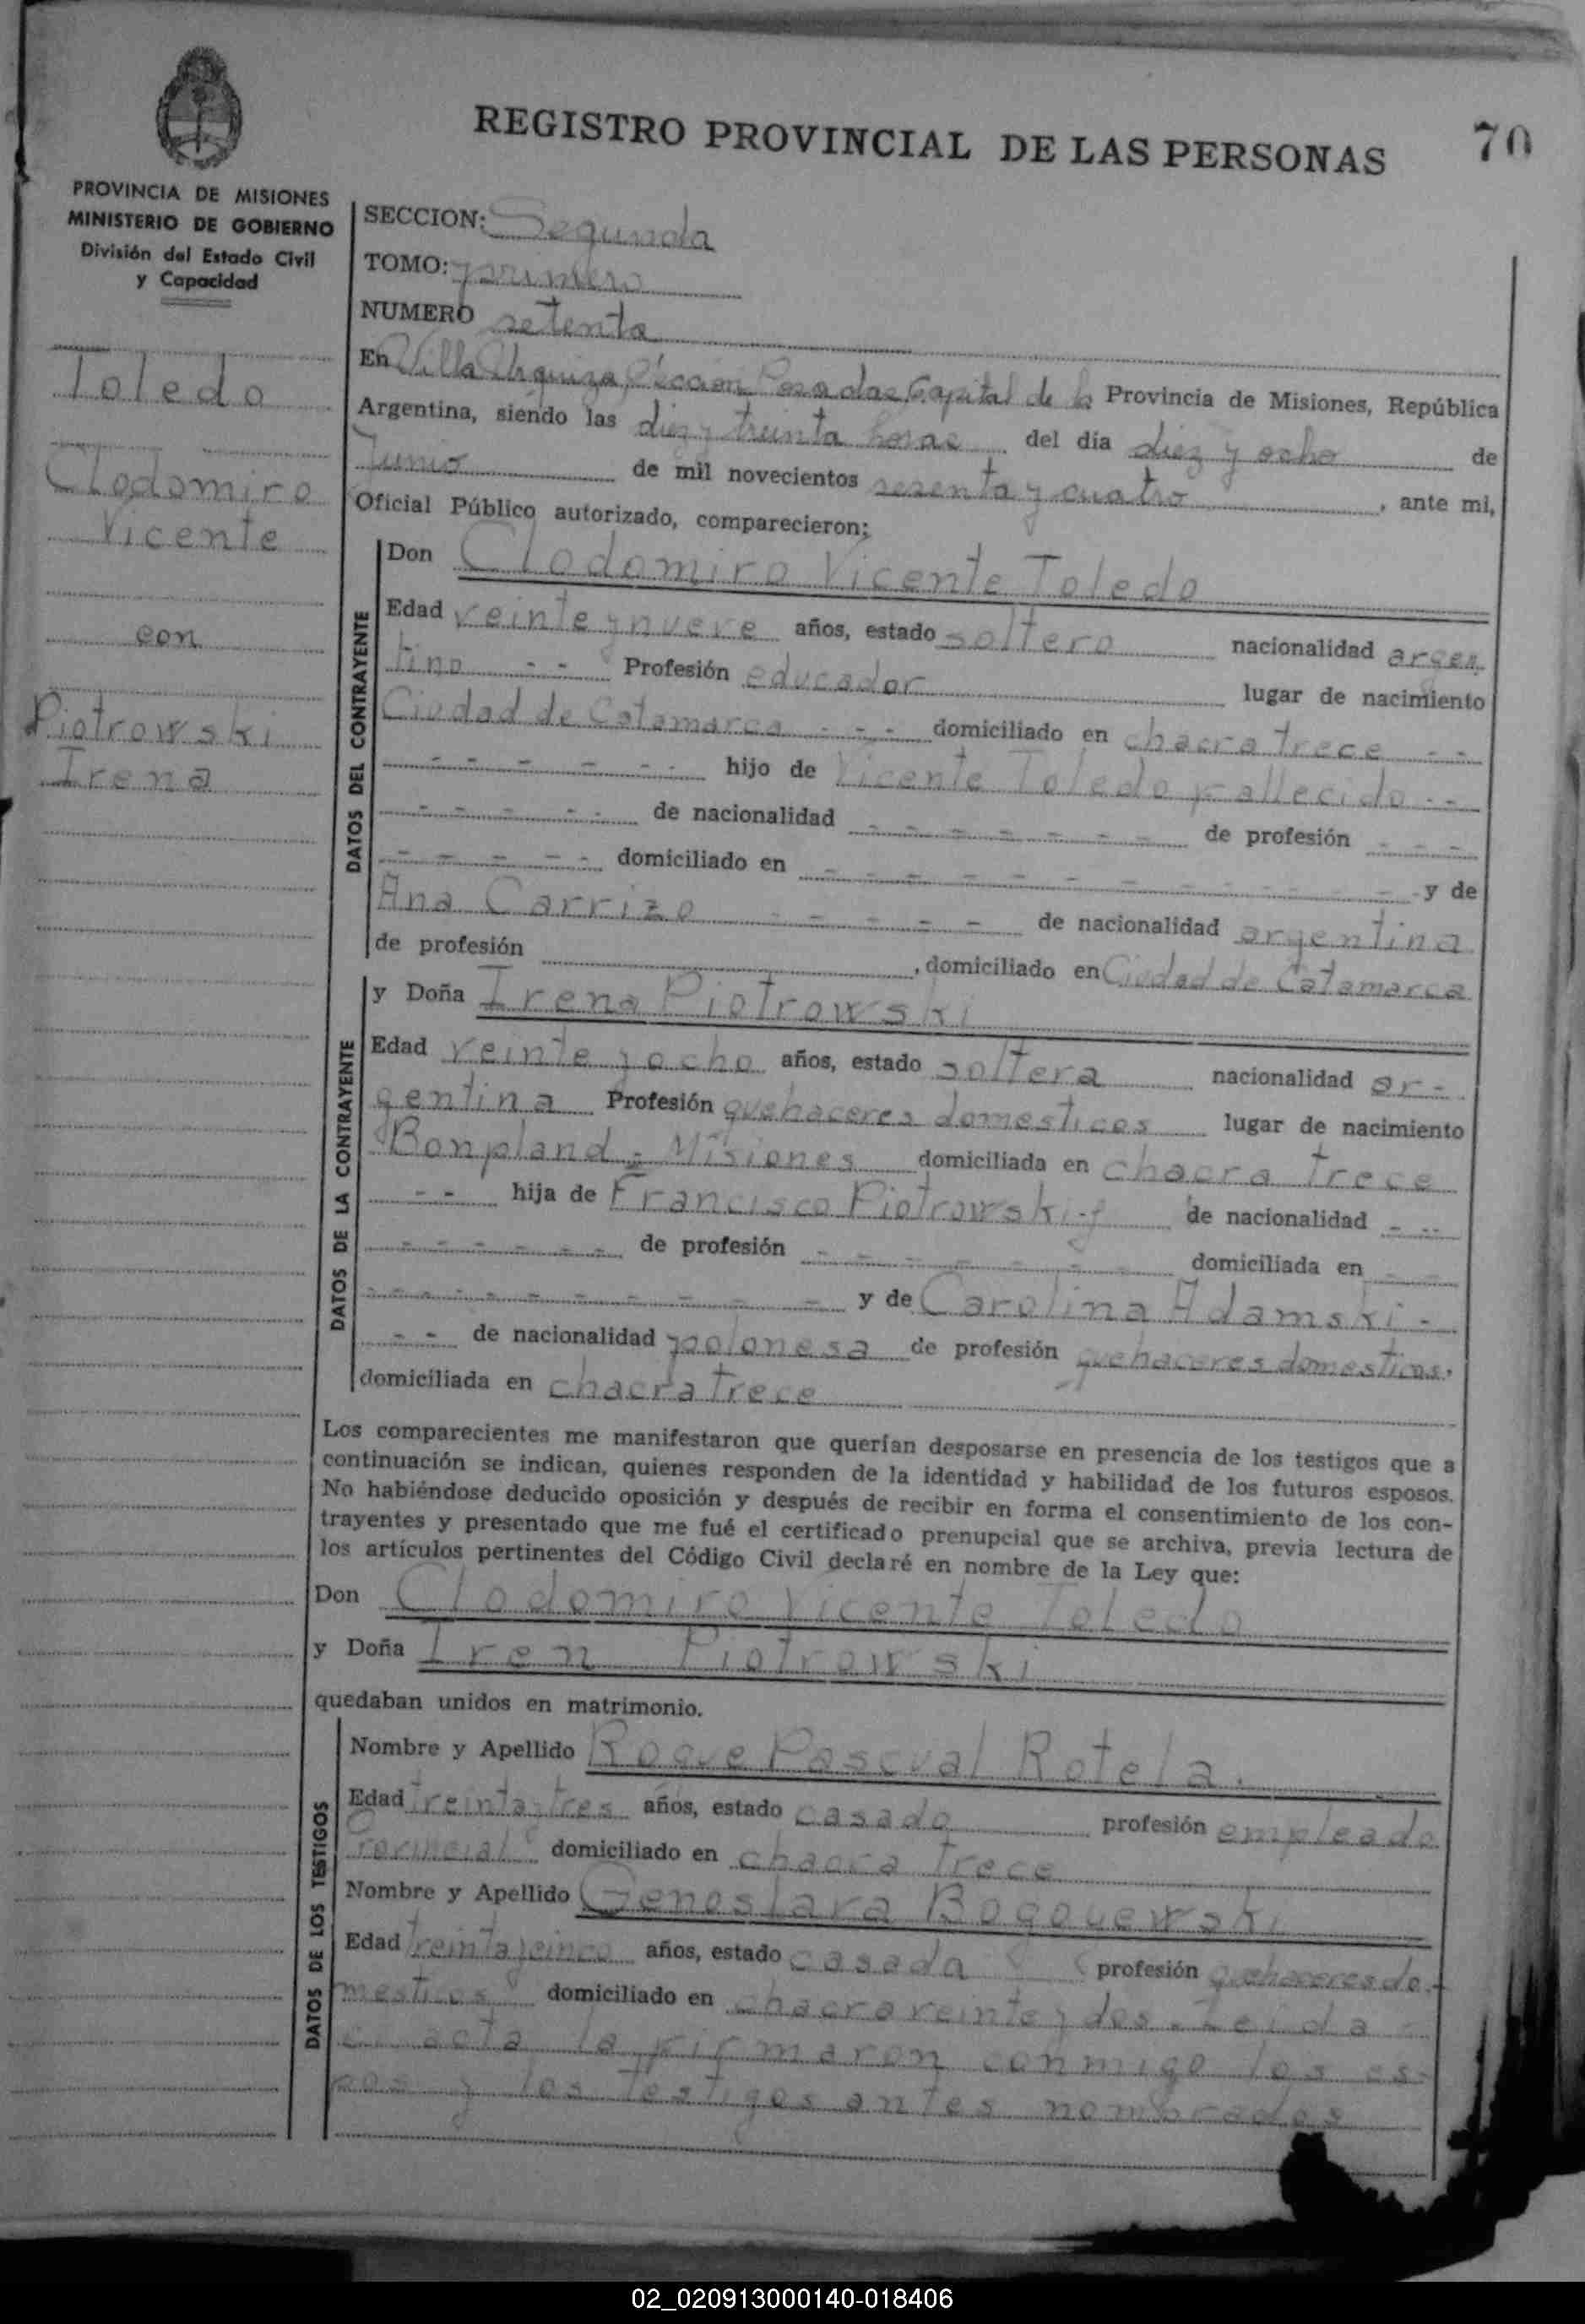 REGISTRO PROVINCIAL DE LAS PERSONAS
70
PROVINCIA DE MISIONES
MINISTERIO DE GOBIERNO
División del Estado Civil
y Capacidad
Toledo
Clodomiro
Vicente
con
Piotrowski
Irena
SECCION: Segunda
TOMO: primero
NUMERO setenta
En Villa Urquiza, Sección Posadas Capital de la Provincia de Misiones, República
Argentina, siendo las diez y treinta horas del día diez y ocho de
Junio de mil novecientos sesenta y cuatro, ante mi,
Oficial Público autorizado, comparecieron;
DATOS DEL CONTRAYENTE
Don Clodomiro Vicente Toledo
Edad veinte y nueve años, estado soltero nacionalidad argen
tino - - Profesión educador lugar de nacimiento
Ciudad de Catamarca - - - domiciliado en chacra trece - -
- - - - - - hijo de Vicente Toledo fallecido - -
- - - - - - de nacionalidad - - - - - - - de profesión - - -
- - - - - domiciliado en - - - - - - - - - - y de
Ana Carrizo - - - - - - de nacionalidad argentina
de profesión , domiciliado en Ciudad de Catamarca
DATOS DE LA CONTRAYENTE
y Doña Irena Piotrowski
Edad veinte y ocho años, estado soltera nacionalidad ar-
gentina Profesión quehaceres domesticos lugar de nacimiento
Bonpland - Misiones domiciliada en chacra trece
- - hija de Francisco Piotrowski -f de nacionalidad - - -
- - - - - - - de profesión - - - - - - - domiciliada en - -
- - - - - - - - - - y de Carolina Adamski -
- - de nacionalidad polonesa de profesión quehaceres domesticos.
domiciliada en chacra trece
Los comparecientes me manifestaron que querían desposarse en presencia de los testigos que a
continuación se indican, quienes responden de la identidad y habilidad de los futuros esposos.
No habiéndose deducido oposición y después de recibir en forma el consentimiento de los con-
trayentes y presentado que me fué el certificado prenupcial que se archiva, previa lectura de
los artículos pertinentes del Código Civil declaré en nombre de la Ley que:
Don Clodomiro Vicente Toledo
y Doña Iren Piotrowski
quedaban unidos en matrimonio.
DATOS DE LOS TESTIGOS
Nombre y Apellido Roque Pascual Rotela.
Edad treinta y tres años, estado casado profesión empleado
Provincial domiciliado en chacra trece
Nombre y Apellido Genoslava
Edad treinta y cinco años, estado casada profesión quehaceres do-
mesticos domiciliado en chacra veinte y dos. Leida
acta la firmaron conmigo los es-
pos y los testigos antes nombrados
02_020913000140-018406